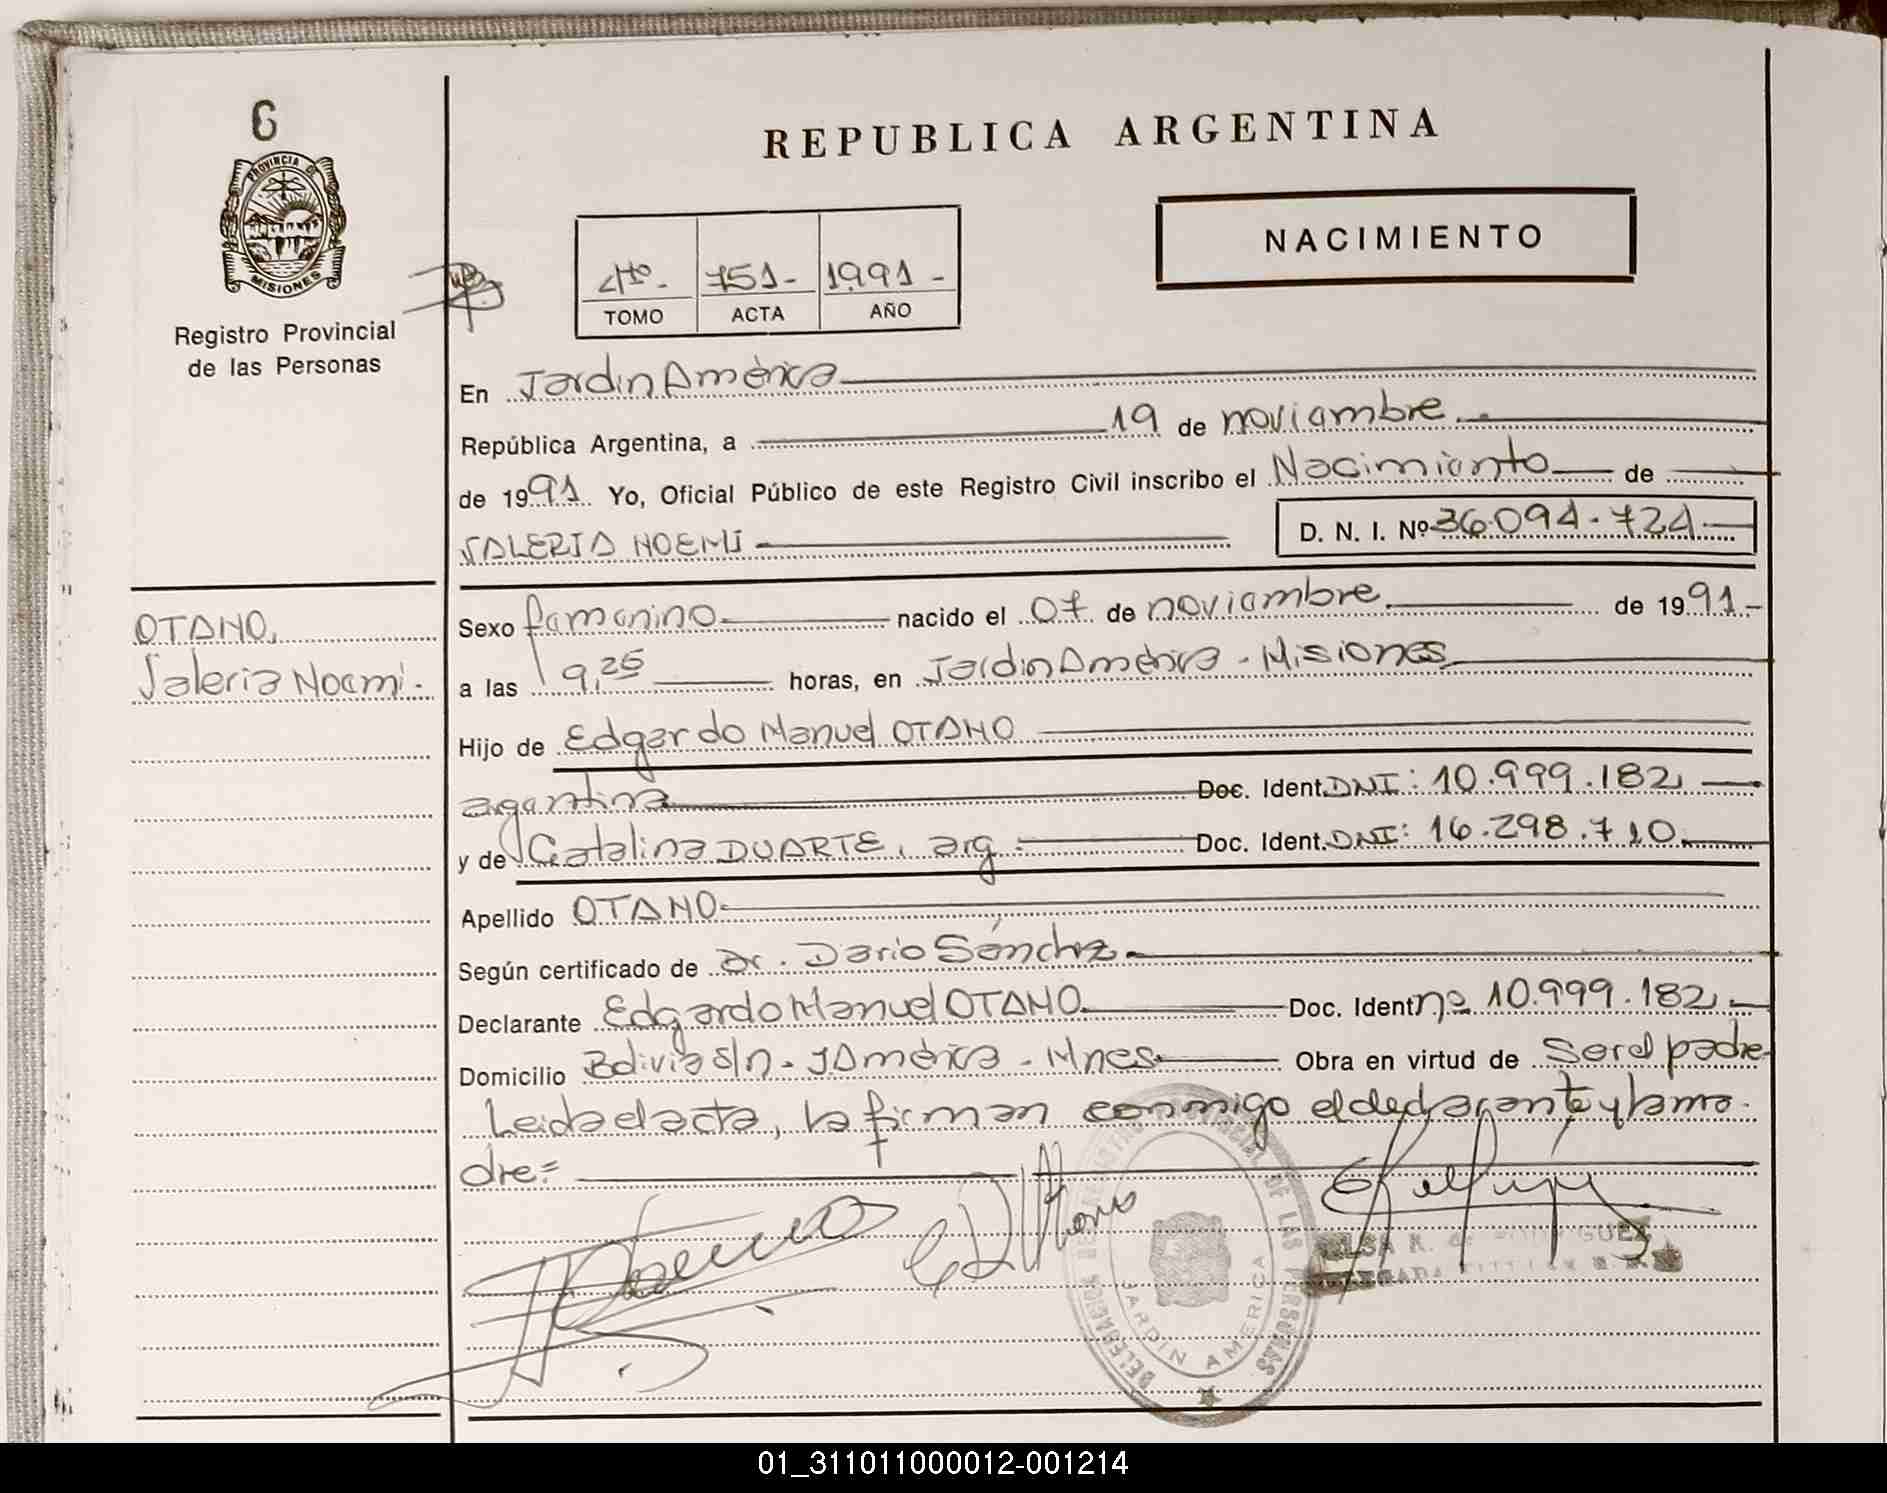 6
PROVINCIA DE
MISIONES
Registro Provincial
de las Personas
REPUBLICA ARGENTINA
NACIMIENTO
4to.- 751- 1991-
TOMO ACTA AÑO
En Jardin América
República Argentina, a 19 de noviembre.
de 1991. Yo, Oficial Público de este Registro Civil inscribo el Nacimiento de
VALERIA NOEMI D. N. I. Nº 36.094.724
OTANO,
Valeria Noemi.
Sexo femenino nacido el 07 de noviembre de 1991-
a las 9,25 horas, en Jardin América - Misiones
Hijo de Edgardo Manuel OTANO
argentina Doc. Ident. DNI: 10.999.182
y de Catalina DUARTE, arg. Doc. Ident. DNI: 16.298.710.
Apellido OTANO
Según certificado de Dr. Dario Sánchez
Declarante Edgardo Manuel OTANO Doc. Ident. nº 10.999.182
Domicilio Bolivia s/n - J. América - Mnes Obra en virtud de Ser el padre
Leida el acta, la firman conmigo el declarante y la ma-
dre=
DELEGACION DE LAS PERSONAS
JARDIN AMERICA
01_311011000012-001214